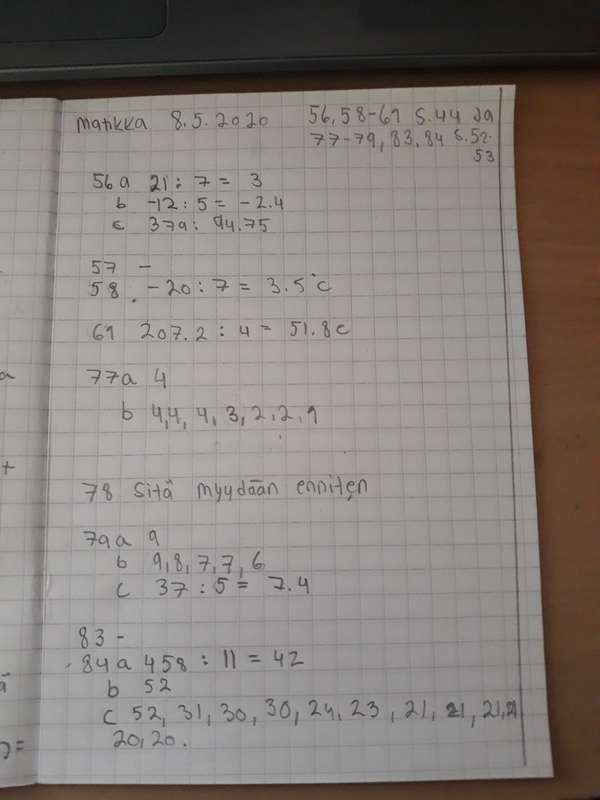 matikka 8.5.2020 56, 58-61 s.44 ja
77-79, 83, 84 s.52-
53
56 a 21 : 7 = 3
b -12 : 5 = -2.4
c 379 : 94.75
57 -
58. -20 : 7 = 3.5°c
61 207.2 : 4 = 51.8c
77a 4
b 4,4, 4, 3, 2, 2, 1
78 Sitä myydään enniten
79a 9
b 9,8, 7,7, 6
c 37 : 5 = 7.4
83 -
84 a 458 : 11 = 42
b 52
c 52, 31, 30, 30, 24, 23, 21, 21, 21, 21
20, 20.